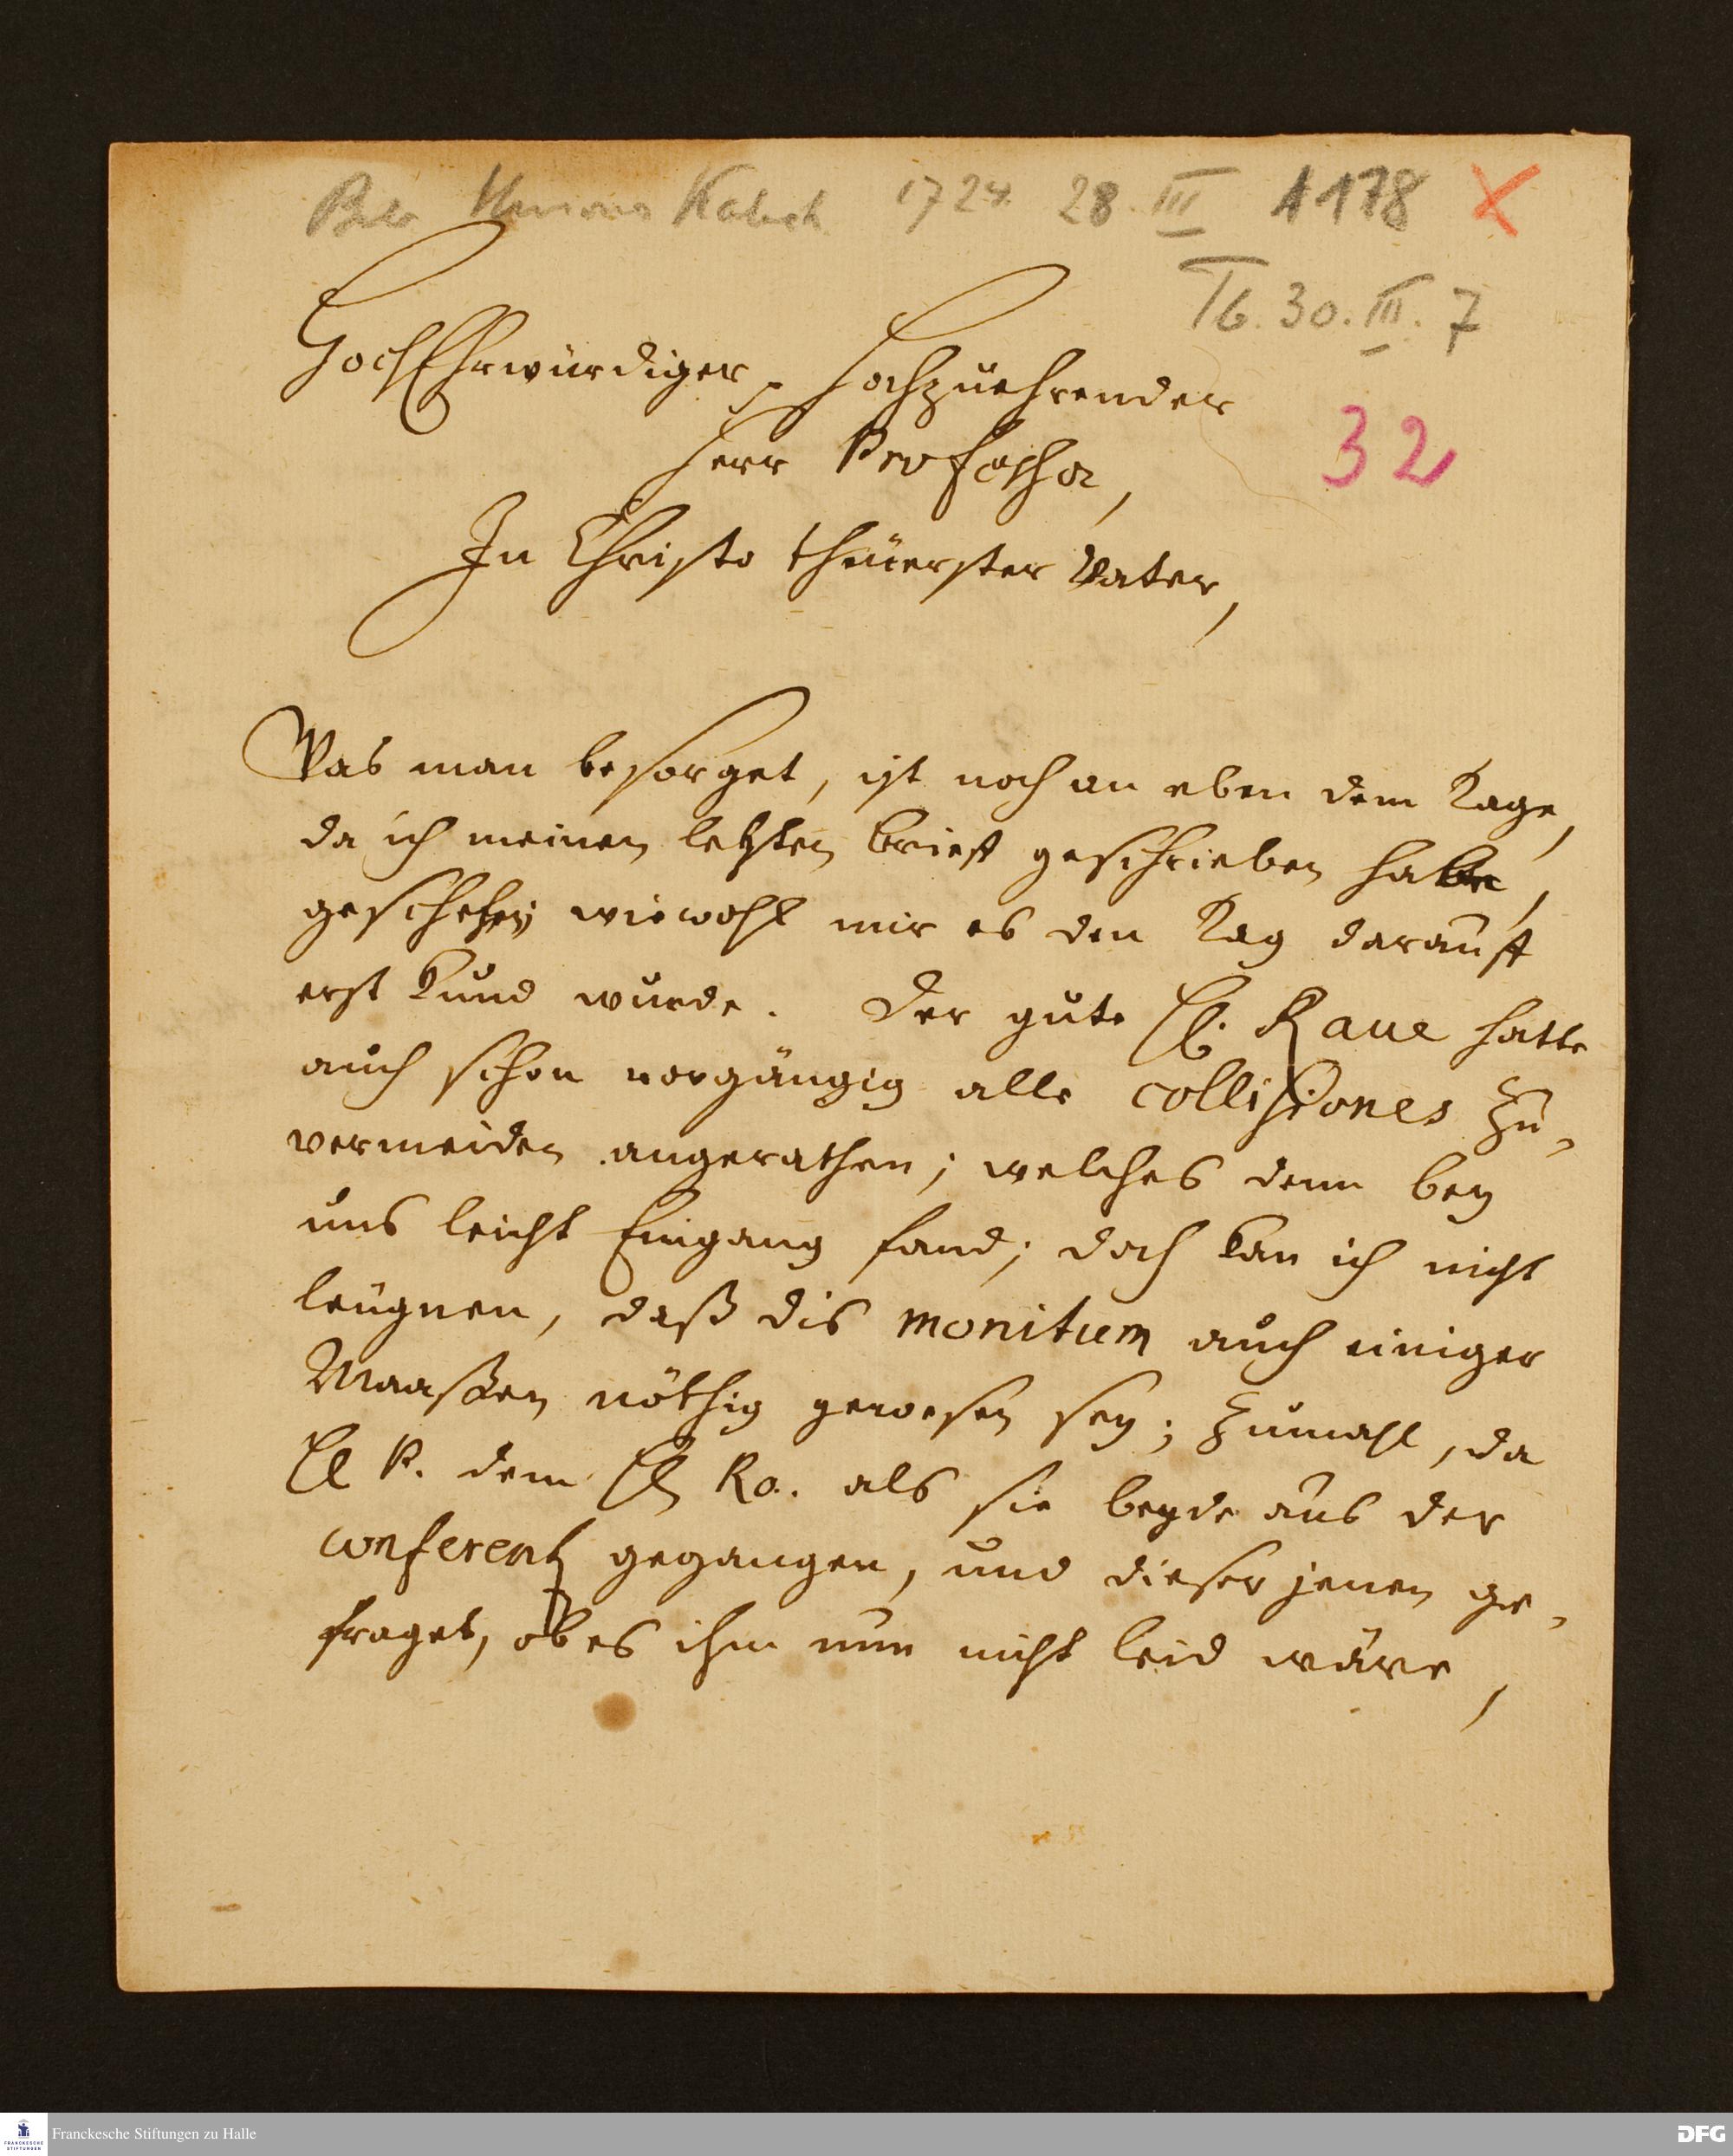 1724. 28. III A 178 X
Tb. 30. III. 7
HochEhrwürdiger, Hochzuehrender
Herr Professor,
32
In Christo theuerster Vater,
Was man besorget, ist noch an eben dem Tage,
da ich meinen letzten Brieff geschrieben habe,
geschehen; wiewohl mir es den Tag darauff
erst kund wurde. Der gute H. Raue hatte
auch schon vorgängig alle collisiones zu
vermeiden angerathen; welches denn bey
uns leicht Eingang fand; doch kan ich nicht
leugnen, daß dis monitum auch einiger
Maaßen nöthig gewesen sey; zumahl, da
H R. dem H Ra. als sie beyde aus der
conferentz gegangen, und dieser jenen ge-
fraget, ob es ihm nun nicht leid wäre,
Franckesche Stiftungen zu Halle
DFG